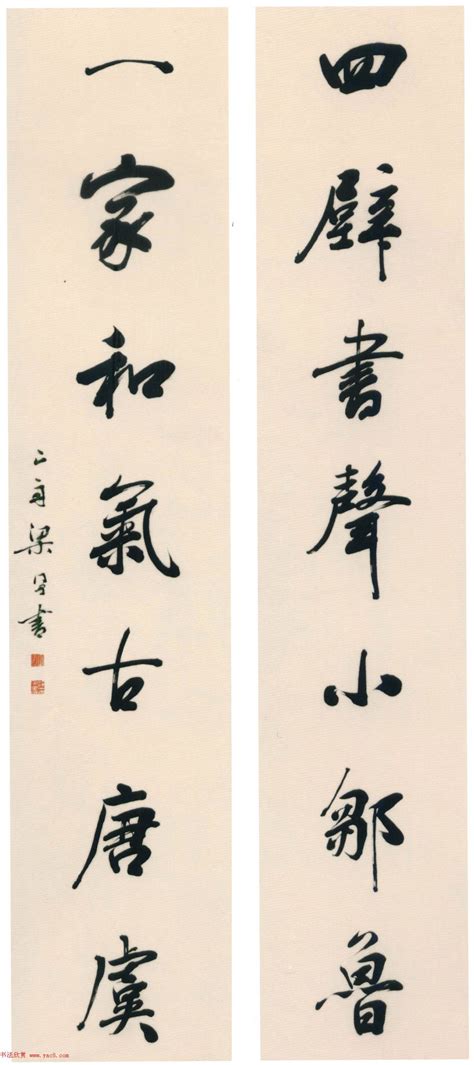 四壁書聲小鄒魯
一家和氣古唐虞
梁 書
书法欣赏 www.yac8.com